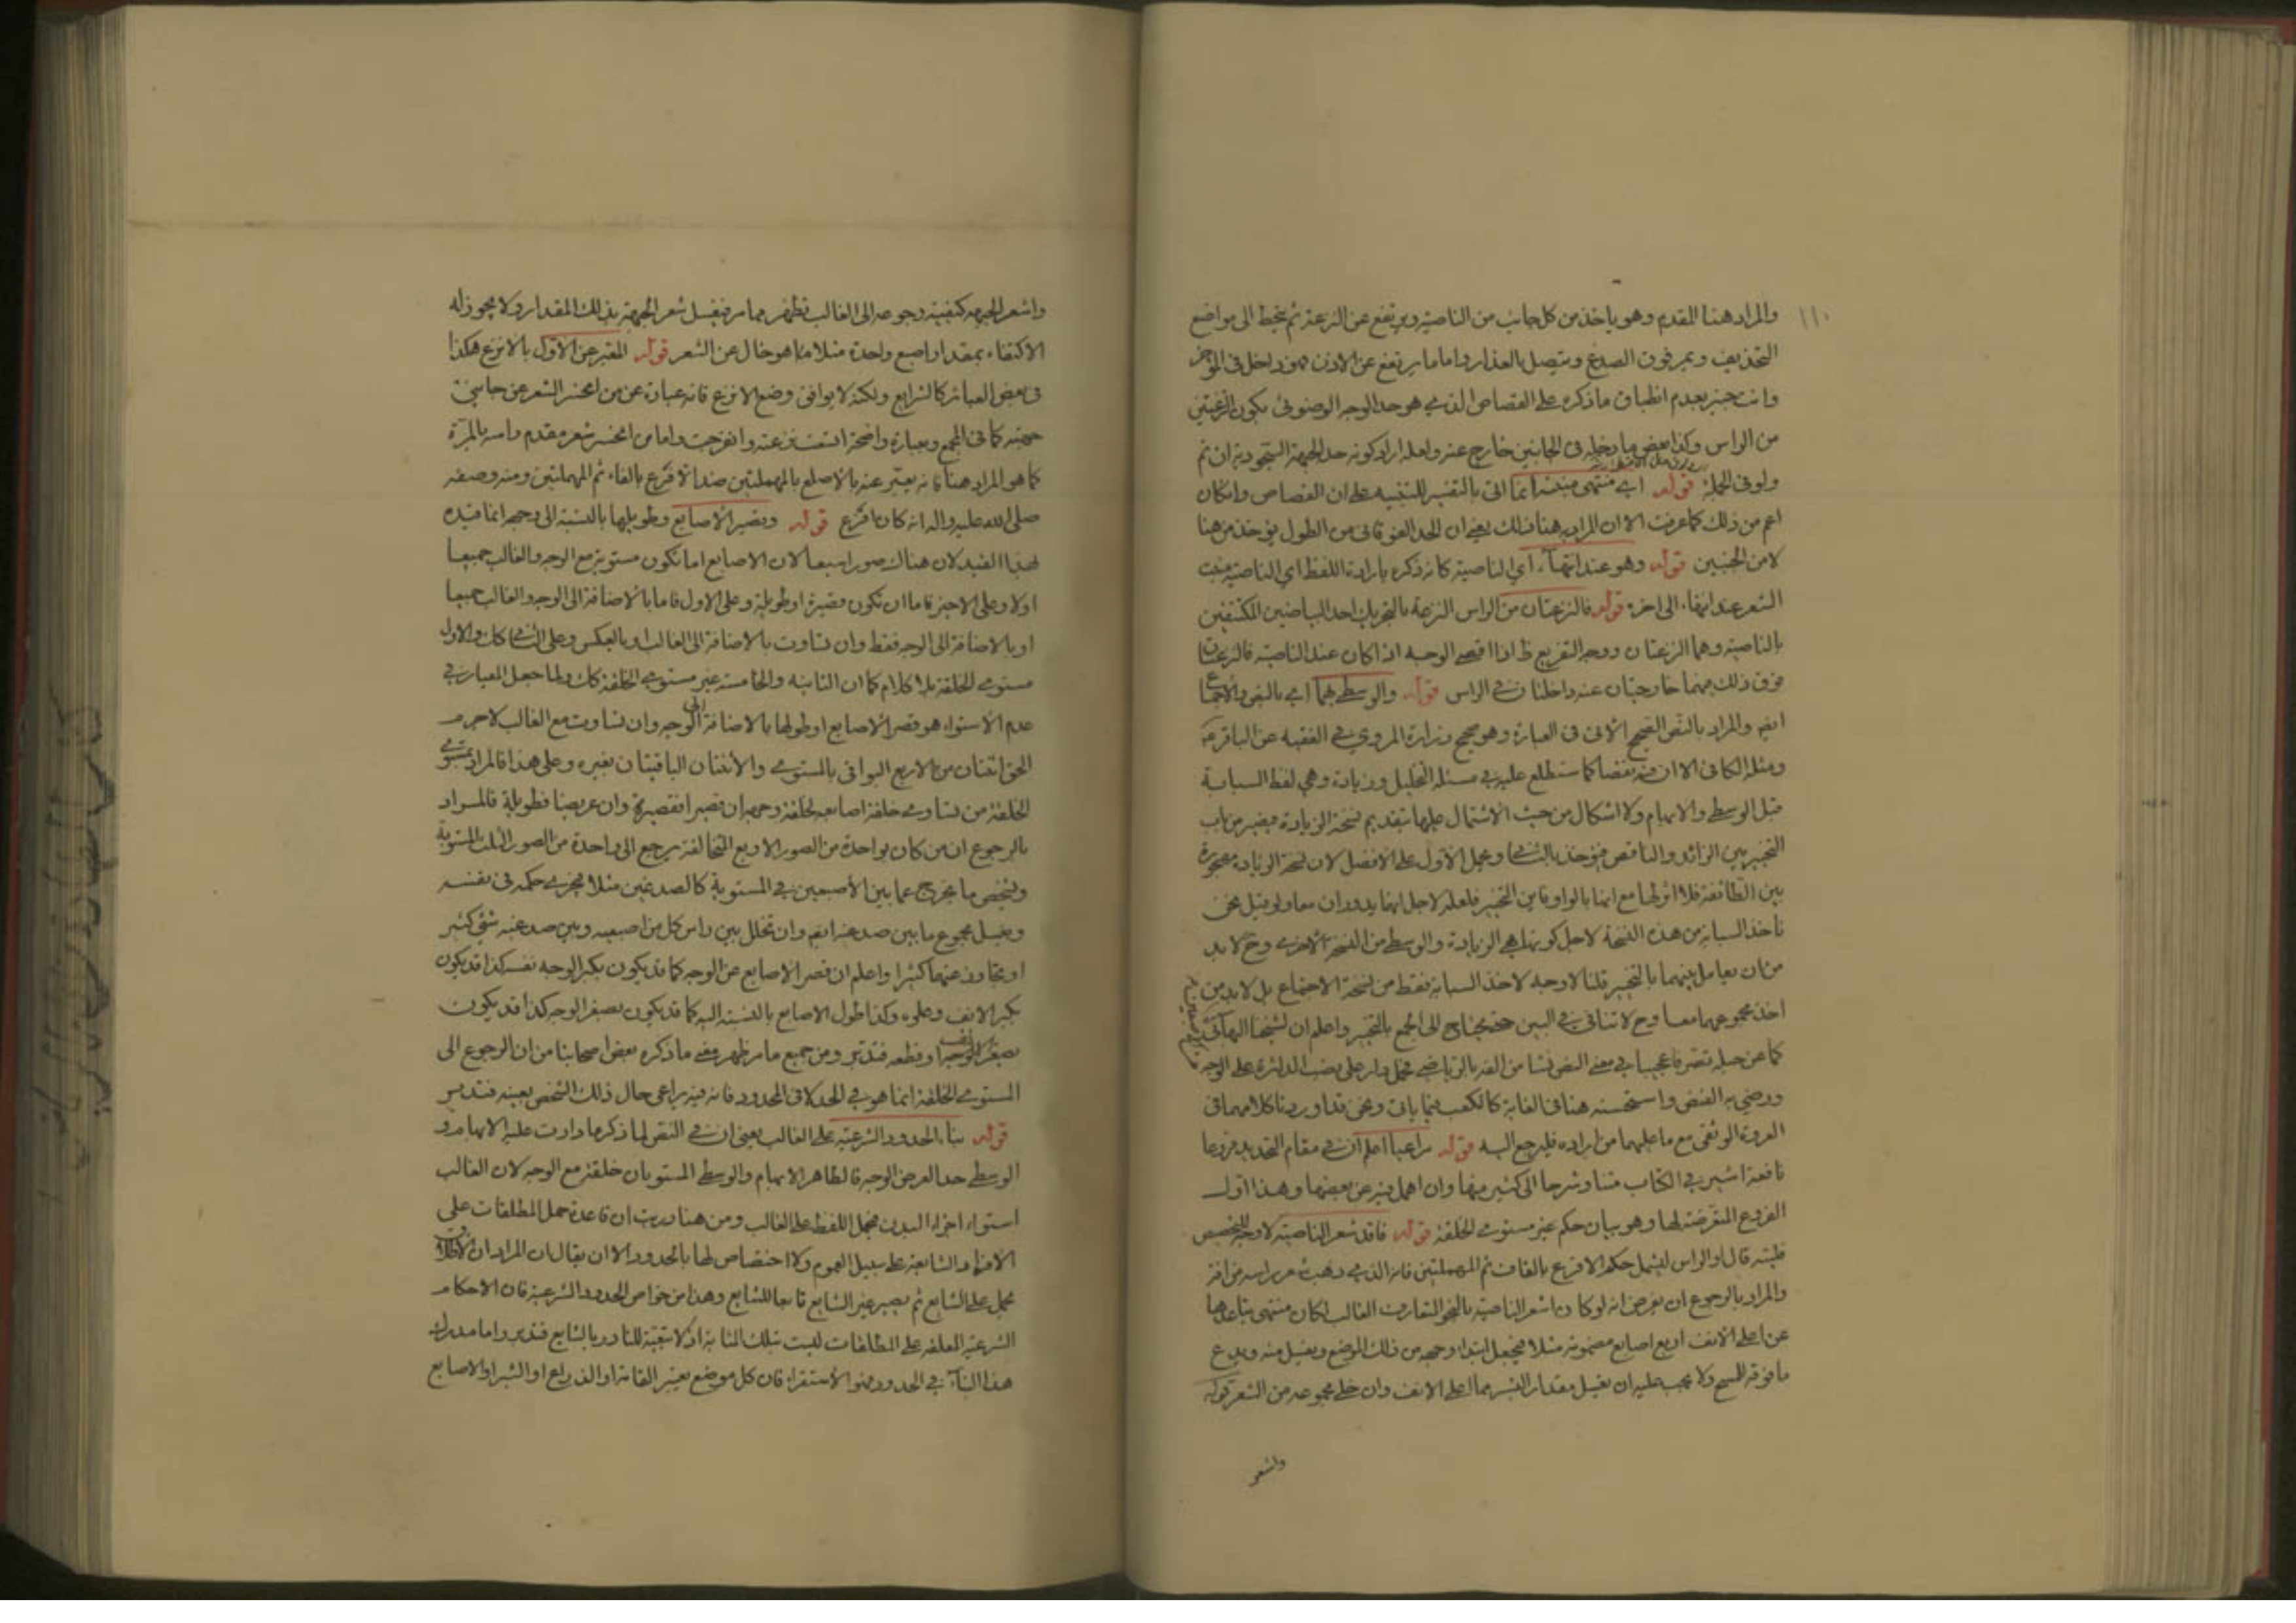 ١١٠
والمراد هنا المقدم وهو ياخذ من كل جانب من الناصية ويرتفع عن النزعة ثم يخط الى مواضع
التحذيف ويمر فوق الصدغ ويتصل بالعذار واما ما يرتفع عن الاذن فهو داخل في المؤخر
وانت خبير بعدم انطباق ما ذكره على القصاص الذي هو حد الوجه الوضوئي بكون النزعتين
من الراس وكذا بعض ما دخله في الجانبين خارج عنه ولعله اراد كونه حد الجبهة السجودية ان تم
ولو في الجملة قوله اي منتهى منبته انما اتى بالتفسير للتنبيه على ان القصاص وان كان
اعم من ذلك كما عرفت الا ان المراد به هنا ذلك يعني ان الحد الفوقاني من الطول يؤخذ من هنا
لا من الجنبين قوله وهو عند انتهاء اي الناصية كانه ذكره بارادة اللفظ اي الناصية منبت
الشعر عند انتهاء الى اخره قوله فالنزعتان من الراس النزعة بالتحريك احد البياضين المكتنفين
بالناصية وهما النزعتان ووجه التفريع ظ اذا اقصى الوجه اذا كان عند الناصية فالنزعتان
فوق ذلك فهما خارجتان عنه داخلتان في الراس قوله والوسطى بهما اي بالنص والاجماع
ايضا والمراد بالنص الصحيح الاتي في العبارة وهو صحيح زرارة المروي في الفقيه عن الباقر ع
ومثله الكافي الا ان فيه نقصا كما ستطلع عليه في مسئلة التخليل وزيادة وهي لفظ السبابة
قبل الوسطى والابهام ولا اشكال من حيث الاشتمال عليها بتقديم نسخة الزيادة فيصير من باب
التخيير بين الزائد والناقص فيؤخذ بالثاني ويحمل الاول على الافضل لان نسخة الزيادة مهجورة
بين الطائفة فلا اثر لها مع انها بالواو فاين التخيير فلعله لاجل انها يدوران معا ولو قيل نحن
ناخذ السبابة من هذه النسخة لاجل كونها هي الزيادة والوسطى من النسخة الاخرى وح لا بد
من ان يعامل بينهما بالتخيير قلنا لا وجه لاخذ السبابة فقط من نسخة الاجتماع بل لا بد من
اخذ مجموعهما معا وح لا تنافي في البين حتى يحتاج الى الجمع بالتخيير واعلم ان لشيخنا البهائي
كما عن حبله تصرفا عجيبا في معنى النص نشا من الفه بالرياضي فحمل دار على نصب الدائرة على الوجه
ورضي به الفيض واستحسنه هنا في الغاية كالكعب فيما ياتي ونحن قد اوردنا كلامهما في
العروة الوثقى مع ما عليهما من ايراده فليرجع اليه قوله مراعيا اعلم ان في مقام التحديد فروعا
نافعة اشير في الكتاب متنا وشرحا الى كثير منها وان اهمل فيه عن بعضها وهذا اول
الفروع المتعرضة لها وهو بيان حكم غير مستوي الخلقة قوله فاقد شعر الناصية لا وجه لتخصيص
قال والراس ليشمل حكم الاقرع بالقاف ثم المهملتين فانه الذي ذهب شعر راسه من افة
والمراد بالرجوع ان يفرض انه لو كان نابتا شعر الناصية بالنحو المتعارف الغالب لكان منتهى تباعدها
عن اعلى الانف اربع اصابع مضمومة مثلا فيجعل ابتداء وجهه من ذلك الموضع ويغسل منه ويدع
ما فوقه للمسح ولا يجب عليه ان يغسل مقدار الشبر مما اعلى الانف وان خلي مجموعه من الشعر قوله
واشعر
واشعر الجبهة كيفية رجوعه الى الغالب تظهر مما مر فيغسل شعر الجبهة بذلك المقدار ولا يجوز له
الاكتفاء بمقدار اصبع واحدة مثلا مما هو خال عن الشعر قوله المعبر عن الاول بالانزع هكذا
في بعض العبائر كالشرايع ولكنه لا يوافق وضع الانزع فانه عبارة عن من انحسر الشعر عن جانبي
جبهته كما في المجمع وبعبارة واضحة اتسعت نزعته وانفرجت واما من انحسر شعر مقدم راسه بالمرة
كما هو المراد هنا فانه يعبر عنه بالاصلع بالمهملتين ضد الافرع بالفاء ثم المهملتين ومنه وصفه
صلى الله عليه واله انه كان افرع قوله وبقصير الاصابع وطويلها بالنسبة الى وجهه انما قيده
بهذا القيد لان هناك صورا سبعا لان الاصابع اما تكون مستوية مع الوجه والغالب جميعا
او لا وعلى الاخير فاما ان تكون قصيرة او طويلة وعلى الاول فاما بالاضافة الى الوجه والغالب جميعا
او بالاضافة الى الوجه فقط وان تساوت بالاضافة الى الغالب او بالعكس وعلى الثاني كك والاول
مستوي الخلقة بلا كلام كما ان الثانية والخامسة غير مستوي الخلقة كك ولما جعل المعيار في
عدم الاستواء هو قصر الاصابع او طولها بالاضافة الى الوجه وان تساوت مع الغالب لا جرم
الحق اثنتان من الاربع البواقي بالمستوي والاثنتان الباقيتان بغيره وعلى هذا فالمراد بمستوي
الخلقة من تساوي خلقة اصابعه لخلقة وجهه ان قصيرا فقصيرة وان عريضا فطويلة فالمراد
بالرجوع ان من كان بواحدة من الصور الاربع المتخالفة يرجع الى واحدة من الصور الثلث المستوية
ويتخصص ما يخرج عما بين الاصبعين في المستوية كالصدغين مثلا فيجري حكمه في نفسه
ويغسل مجموع ما بين صدغيه ايضا وان تخلل بين راس كل من اصبعيه وبين صدغيه شئ كثير
او تجاوز عنهما كثيرا واعلم ان قصر الاصابع عن الوجه كما قد يكون بكبر الوجه نفسه كذا قد يكون
بكبر الانف وعلوه وكذا طول الاصابع بالنسبة اليه كما قد يكون بصغر الوجه كذا قد يكون
بصغر الانف او قطعه فتدبر ومن جميع ما مر ظهر معنى ما ذكره بعض اصحابنا من ان الرجوع الى
المستوي الخلقة انما هو في الحد لا في المحدود فانه فيه يراعى حال ذلك الشخص بعينه فتدبر
قوله بناء الحدود الشرعية على الغالب يعني ان في النص لما ذكر ما دارت عليه الابهام و
الوسطى حد العرض الوجه فالظاهر الابهام والوسطى المستويان خلقة مع الوجه لان الغالب
استواء اجزاء البدن فيحمل اللفظ على الغالب ومن هنا دريت ان قاعدة حمل المطلقات على
الافراد الشايعة على سبيل العموم ولا اختصاص لها بالحدود الا ان يقال ان المراد ان الاطلاق
يحمل على الشايع ثم يصير غير الشايع تابعا للشايع وهذا من خواص الحدود الشرعية فان الاحكام
الشرعية المعلقة على المطلقات ليست بتلك المثابة اذ لا تبعية للنادر بالشايع فتدبر واما مدرك
هذا البناء في الحدود فهو الاستقراء فان كل موضع يعتبر القامة او الذراع او الشبر او الاصابع